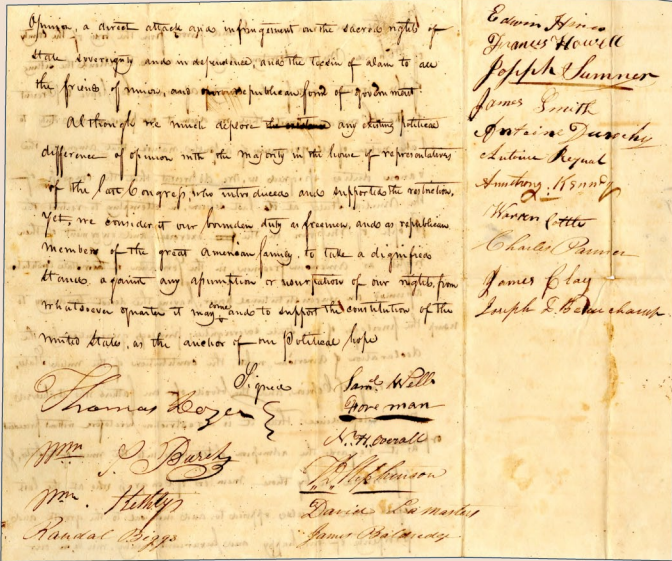 Opinion, a direct attack and infringement on the sacred rights of
State sovereignty and independence, and the tocsin of alarm to all
the friends of union, and our republican form of government.
Although we much depore any existing political
difference of opinion with the majority in the house of representatives
of the last Congress, who introduced and supported the restriction,
Yet, we consider it our bounden duty as freemen, and as republican
members of the great American family, to take a dignified
Stand, against any assumption or usurpation of our rights, from
whatsoever quarter it may come and to support the constitution of the
united States, as the anchor of our Political hope
Signed
Thomas
Wm S. Burch
Wm.
Randal Biggs
Saml. Wells
Foreman
N. Howell
David
James Baldridge
Edwin Hines
Frances Howell
Joseph Sumner
James Smith
Antoine
Antoine
Armstrong Kennedy
Warren Cottle
Charles
James Clay
Joseph D. Beauchamp